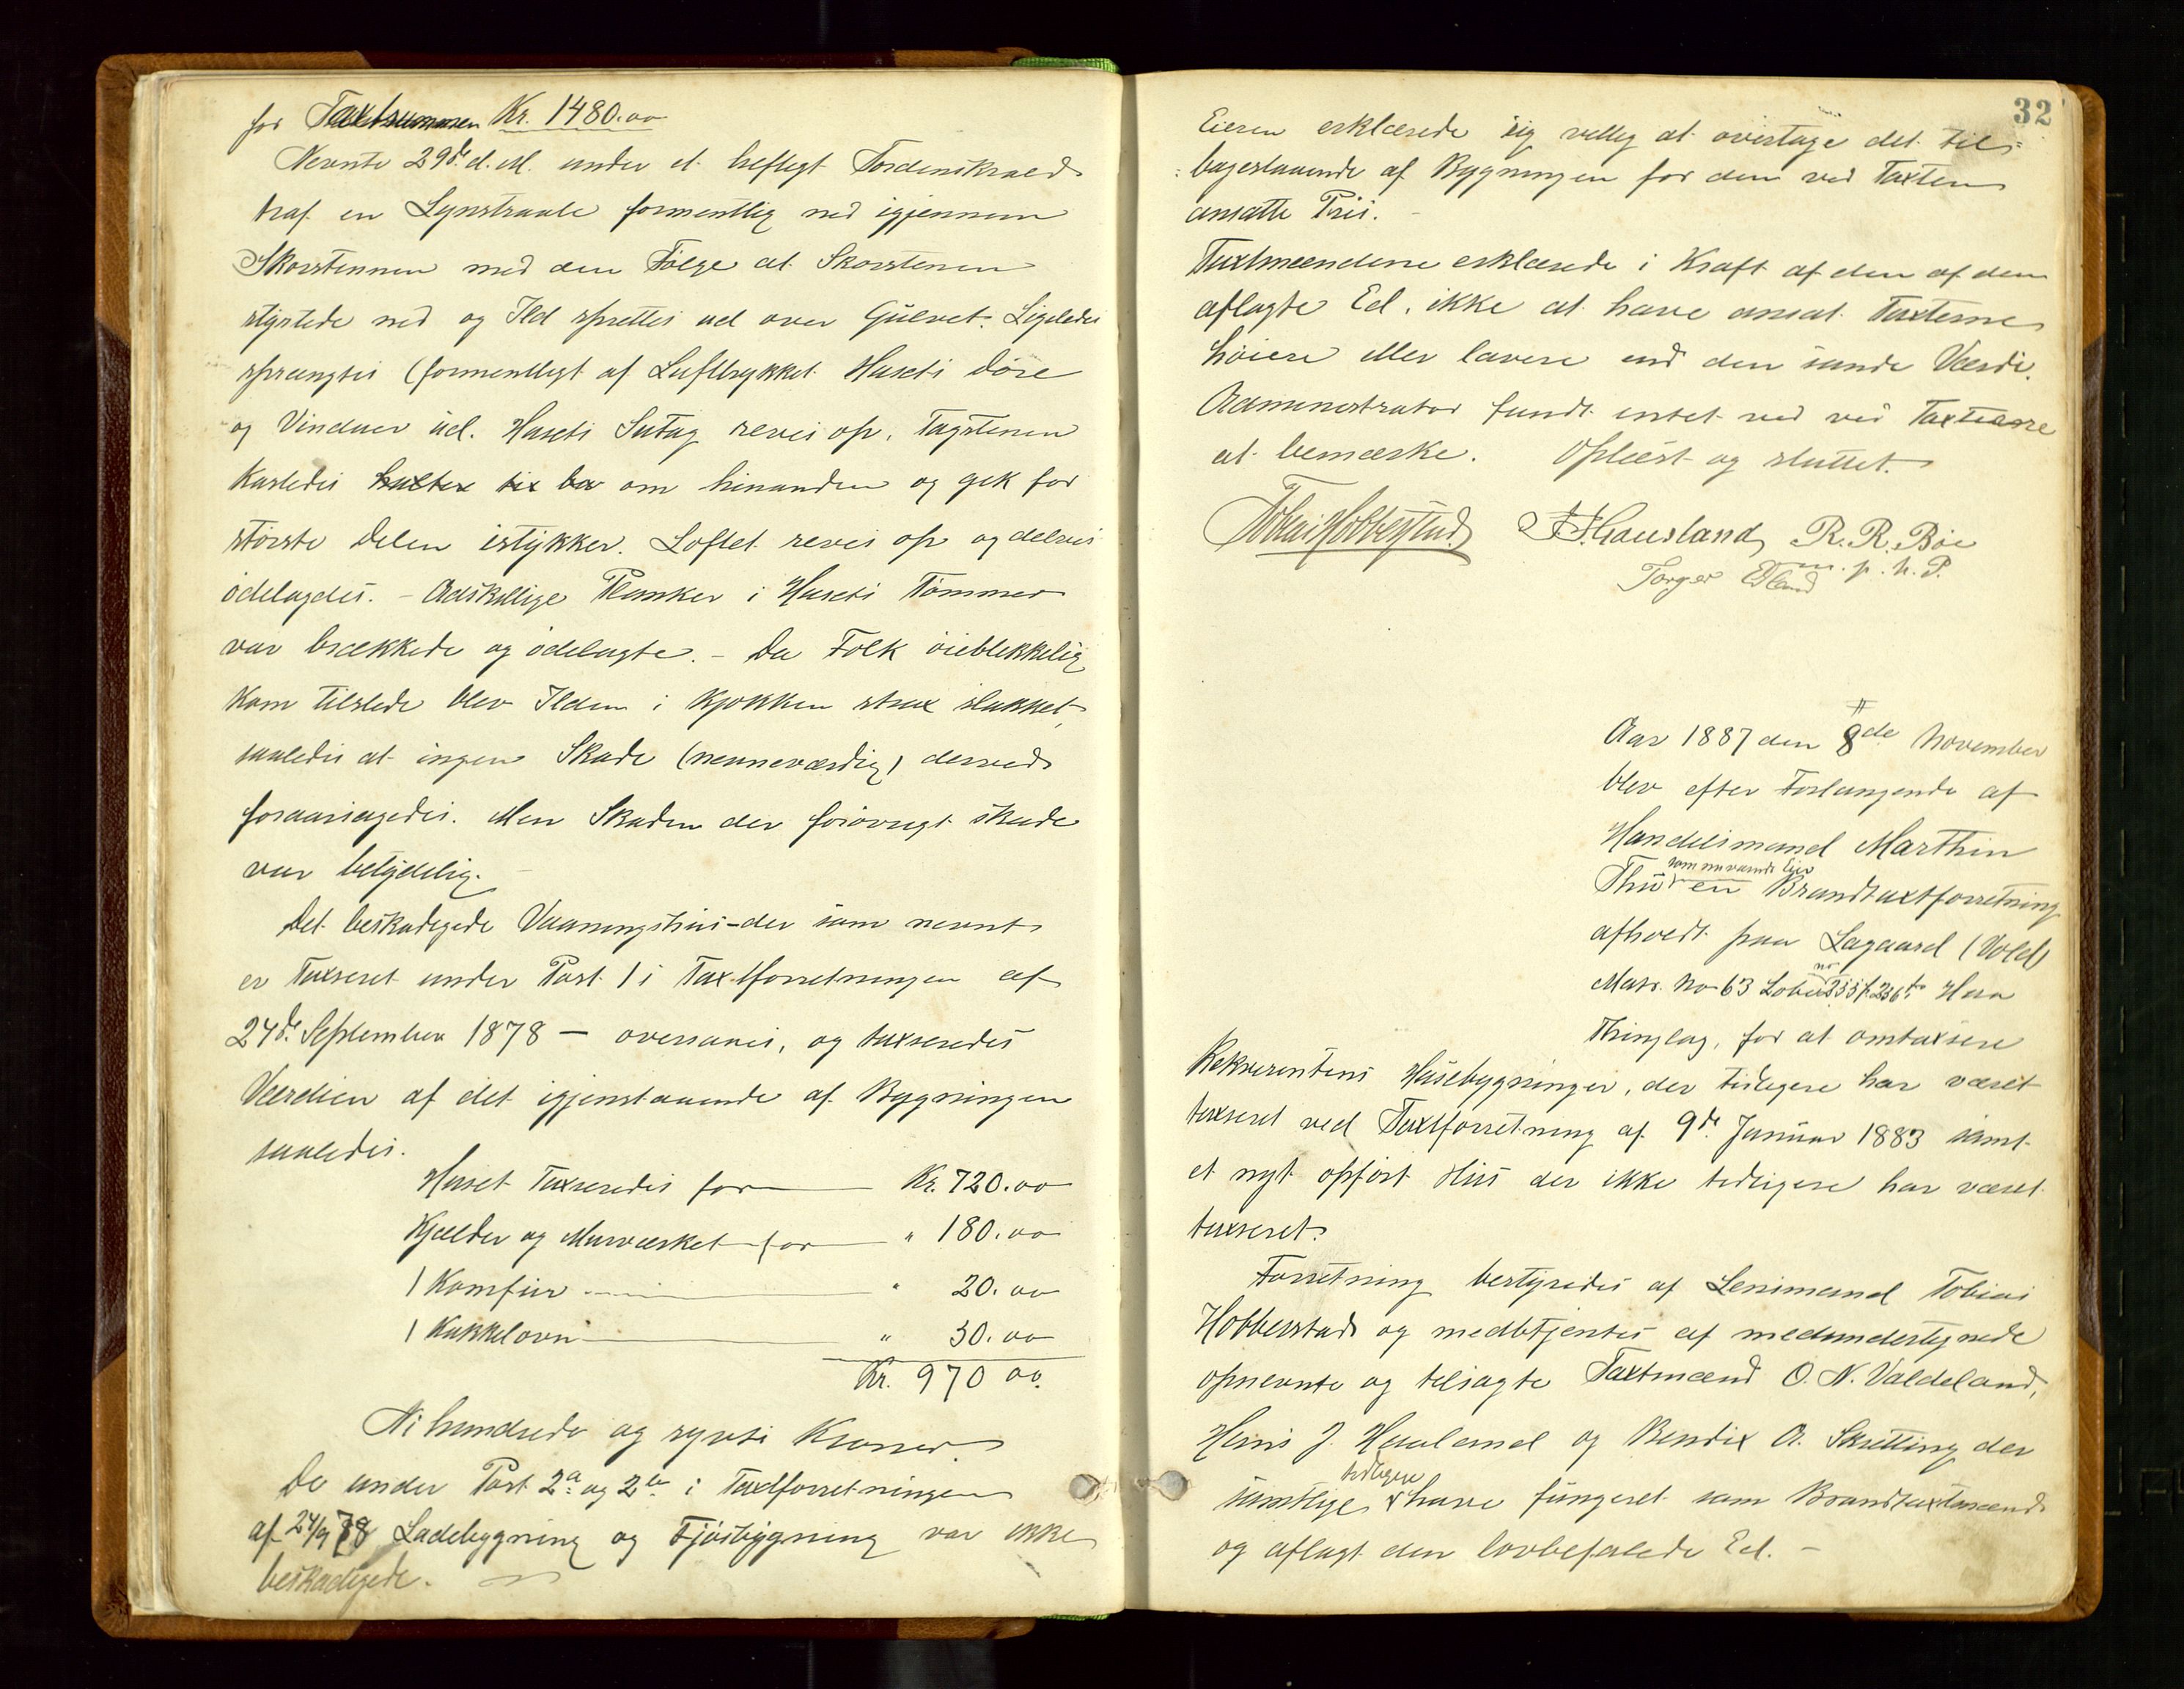 for Taxtsummen Kr. 1480.00
Nevnte 29de d. M. under et heftigt Tordenskrald
traf en Lynstraale formentlig ned igjennem
Skorstennen med den Følge at Skorstenen
styrtede ned og Ild sprettes ud over Gulvet. Ligeledes
sprængtes (formentligt af Lufttrykket Husets Døre
og Vinduer ud. Husets Sutag reves op, Tagstenen
kastedes om hinanden og gik for
største Delen istykker. Loftet reves op og delvis
ødelagdes. - Adskillige Planker i Husets Tømmer
var brækkede og ødelagte. - Da Folk øieblikkelig
kom tilstede blev Ilden i Kjøkken strax slukket,
saaledes at ingen Skade (nenneværdig) derved
foraarsagedes. Men Skaden der forøvrigt skede
var betydelig.
Det beskadigede Vaaningshus - der som nevnt
er Taxseret under Post 1 i Taxtforretningen af
24de September 1878 - oversaaes, og taxseredes
Værdien af det igjenstaaende af Bygningen
saaledes.
Huset Taxseredes for Kr. 720.00
Kjælder og Murværket for " 180.00
1 Komfur " 20.00
1 Kakkelovn " 50.00
Kr. 970 00.
Ni hundrede og sytti Kroner
De under Post 2a og 2b i Taxtforretningen
af 24/9 78 Ladebygning og Fjøsbygning var ikke
beskadigede.
32
Eieren erklærede sig villig at overtage det til-
bagestaaende af Bygningen for den ved Taxten
ansatte Pris. -
Taxtmændene erklærede i Kraft af den af dem
aflagte Ed, ikke at have ansat Taxterne
høiere eller lavere end den sande Værdi.
Administrator fandt intet ved Taxterne
at bemærke. Oplæst og sluttet.
Tobias Hobberstad. Hausland R. R. Bøe
Torger m. p. h. P.
Aar 1887 den 8de November
blev efter Forlangende af
Handelsmand Marthin
som nuværende Eier
Thu en Brandtaxtforretning
afholdt paa Lagaard (Vold)
Matr. No 63 Løbe no 235 & 236 b Haa
Thinglag, for at omtaxsere
Rekvirentens Husebygninger, der tidligere har været
taxseret ved Taxtforretning af 9de Januar 1883 samt
et nyt opført Hus der ikke tidligere har været
taxseret.
Forretning bestyredes af Lensmand Tobias
Hobberstad og medbetjentes af medundertegnede
opnevnte og tilsagte Taxtmænd O. N. Valdeland,
Hans J. Haaland og Bendix A. Skretting der
tidligere
samtlige have fungeret som Brandtaxtmænd
og aflagt den lovbefalede Ed. -